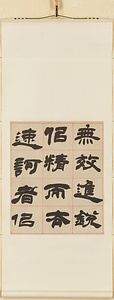 無效進銳
侶精而夲
速訶者侣